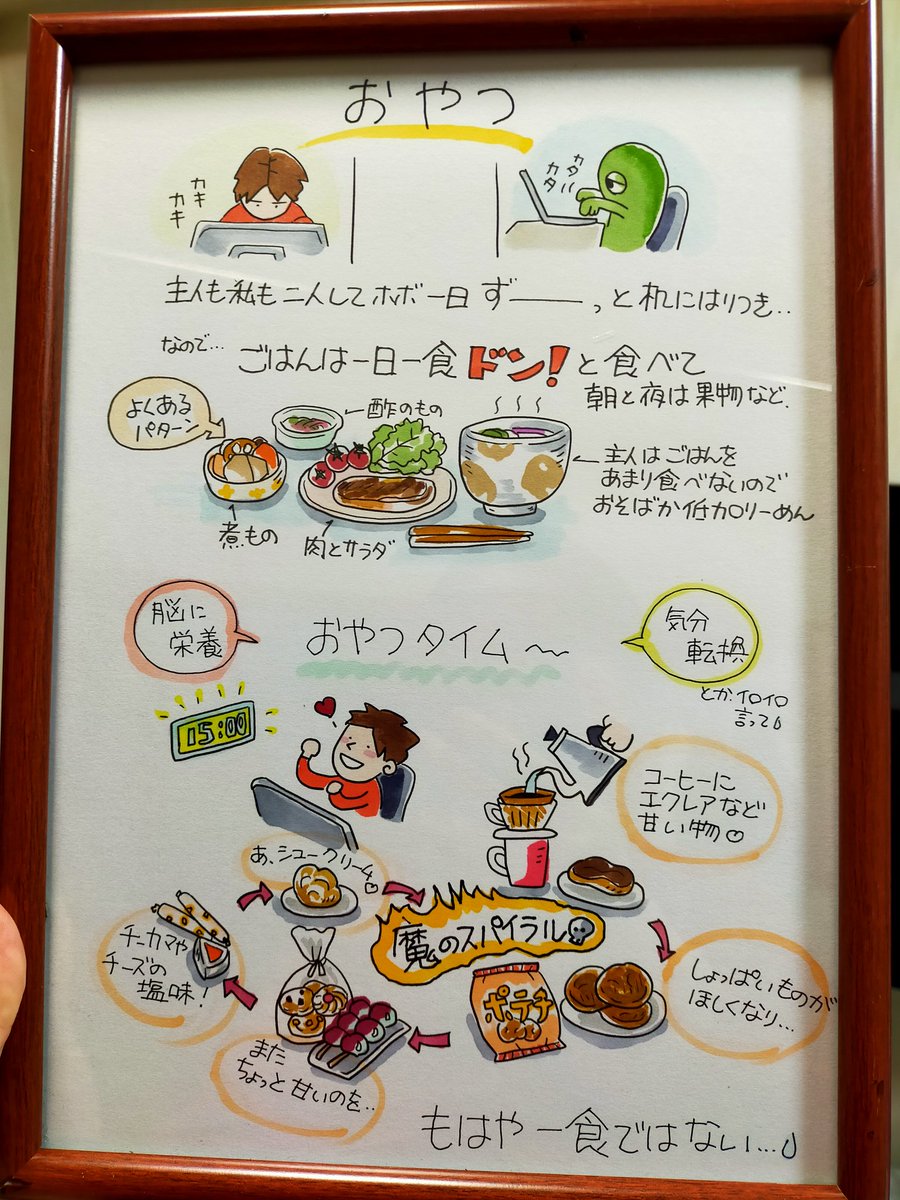 おやつ
カキ
カキ
カタ
カタ
主人も私も二人してホボ一日ずーーっと机にはりつき‥
なので…
ごはんは一日一食ドン!と食べて
朝と夜は果物など.
よくある
パターン
酢のもの
主人はごはんを
あまり食べないので
おそばか低カロリーめん
煮もの
肉とサラダ
脳に
栄養
おやつタイム〜
気分
転換
とか.イロイロ
言って
15:00
コーヒーに
エクレアなど
甘い物♡
あ、シュークリーム♡
魔のスパイラル
チーカマや
チーズの
塩味!
しょっぱいものが
ほしくなり…
ポテチ
また
ちょっと甘いのを‥
もはや一食ではない…